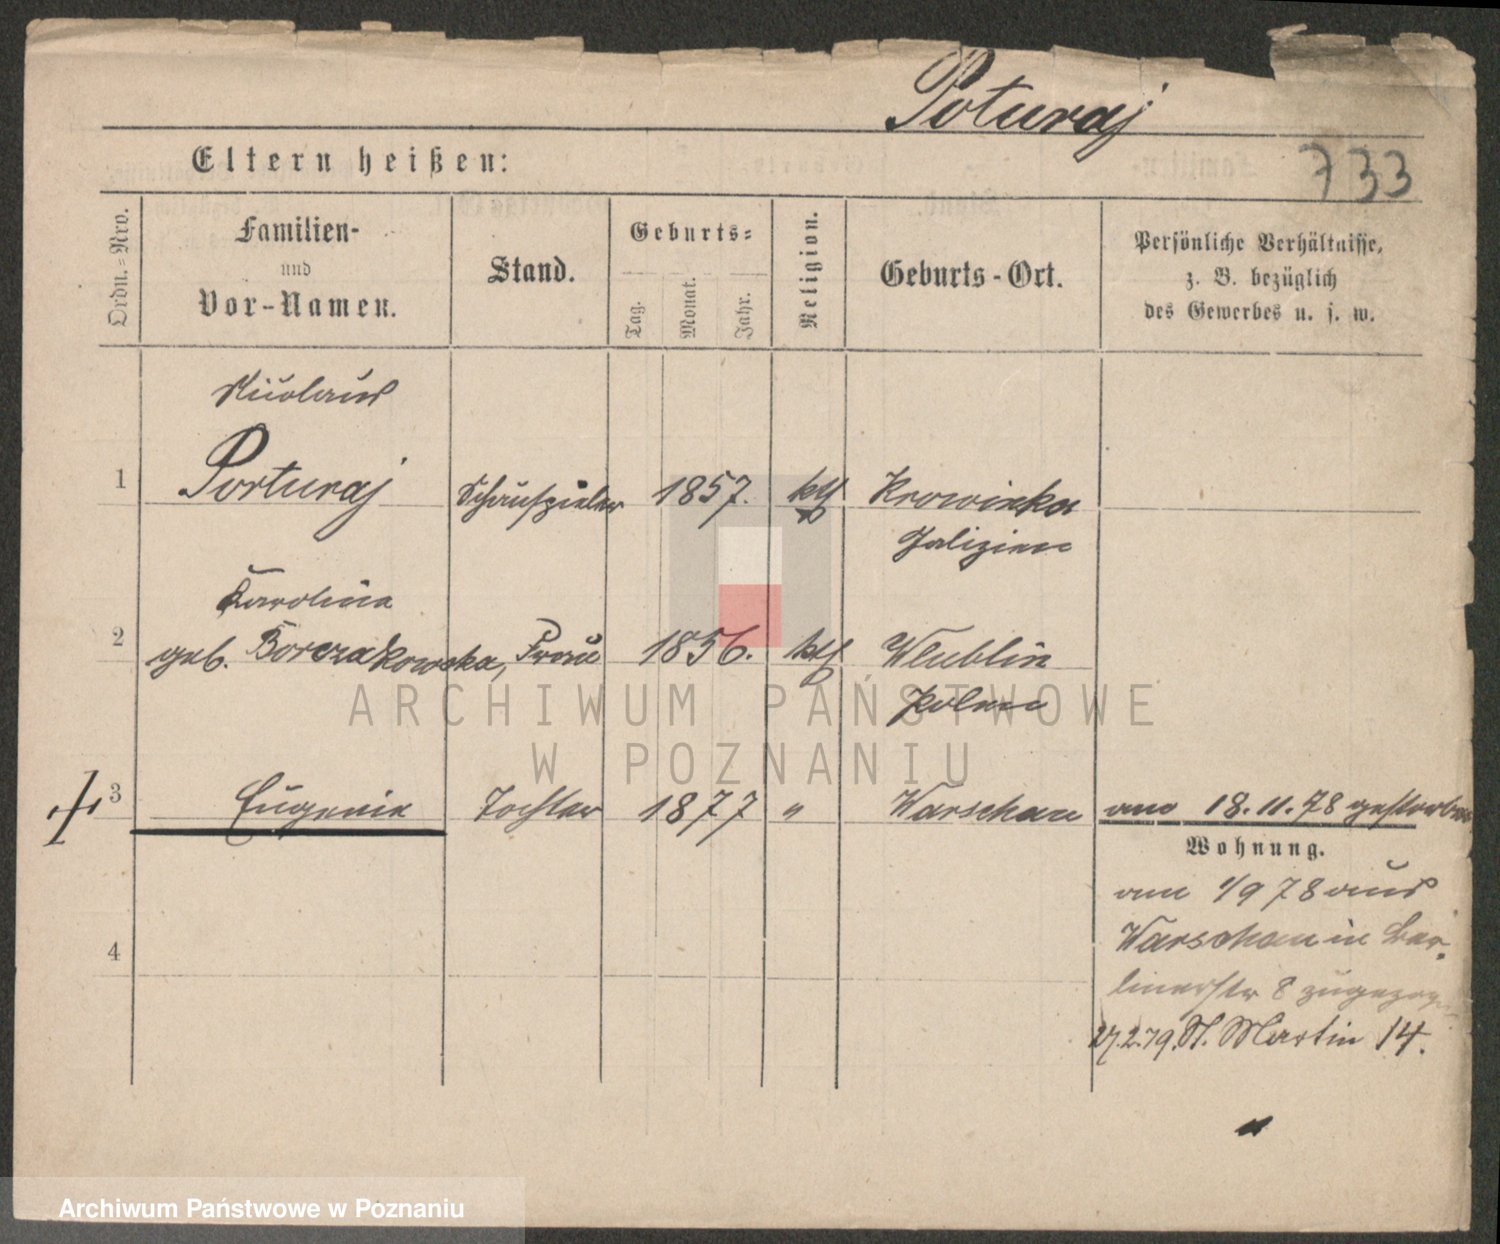 Poturaj
733
Eltern heißen:
Ordn.=Nro.
Familien-
und
Vor-Namen.
Stand.
Geburts=
Tag.
Monat.
Jahr.
Religion.
Geburts-Ort.
Persönliche Verhältnisse,
z. B. bezüglich
des Gewerbes u. s. w.
Nicolaus
1 Porturaj Schauspieler 1857. kth Krowinka
Galizien
Karolina
2 geb. Borczakowska, Frau 1856. kth Wlublin
Polen
3 Eugenie Tochter 1877 " Warschau am 18.11.78 gestorben
Wohnung.
am 1/9 78 aus
Warschau in Ber-
4
linerstr 8 zugezogen
27.2.79. St. Martin 14.
ARCHIWUM PAŃSTWOWE
W POZNANIU
Archiwum Państwowe w Poznaniu